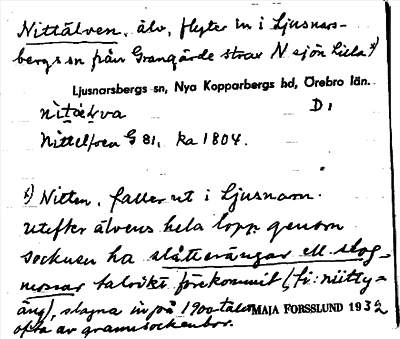 Nittälven, älv, flyter in i Ljusnars-
bergs sn från Grangärde strax N sjön Lilla x)
Ljusnarsbergs sn, Nya Kopparbergs hd, Örebro län.
D1
Nittelfven G 81, ka 1804.
x) Nitten, faller ut i Ljusnaren.
Utefter älvens hela lopp genom
socknen ha slåtterängar ell. slog-
mossar talrikt förekommit (fi: niitty=
äng), slagna in på 1900talet
MAJA FORSSLUND 1932
ofta av grannsockenbor.